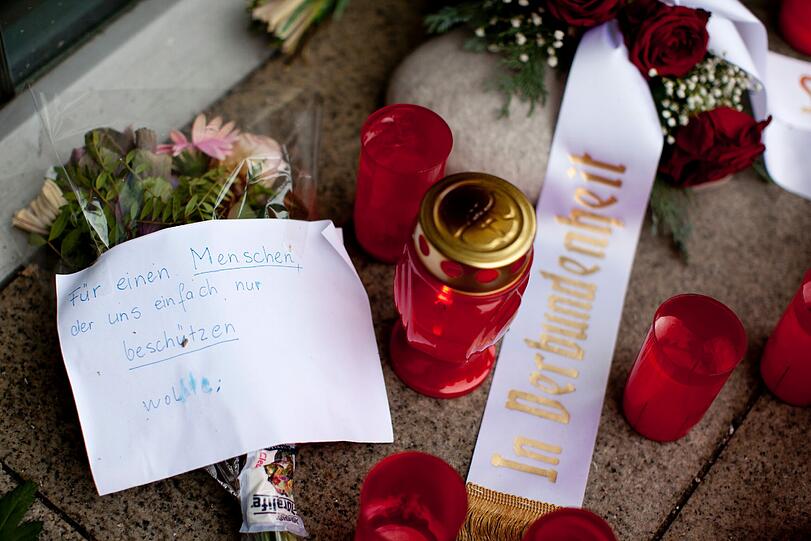 Für einen Menschen,
der uns einfach nur
beschützen
wollte;
In Verbundenheit